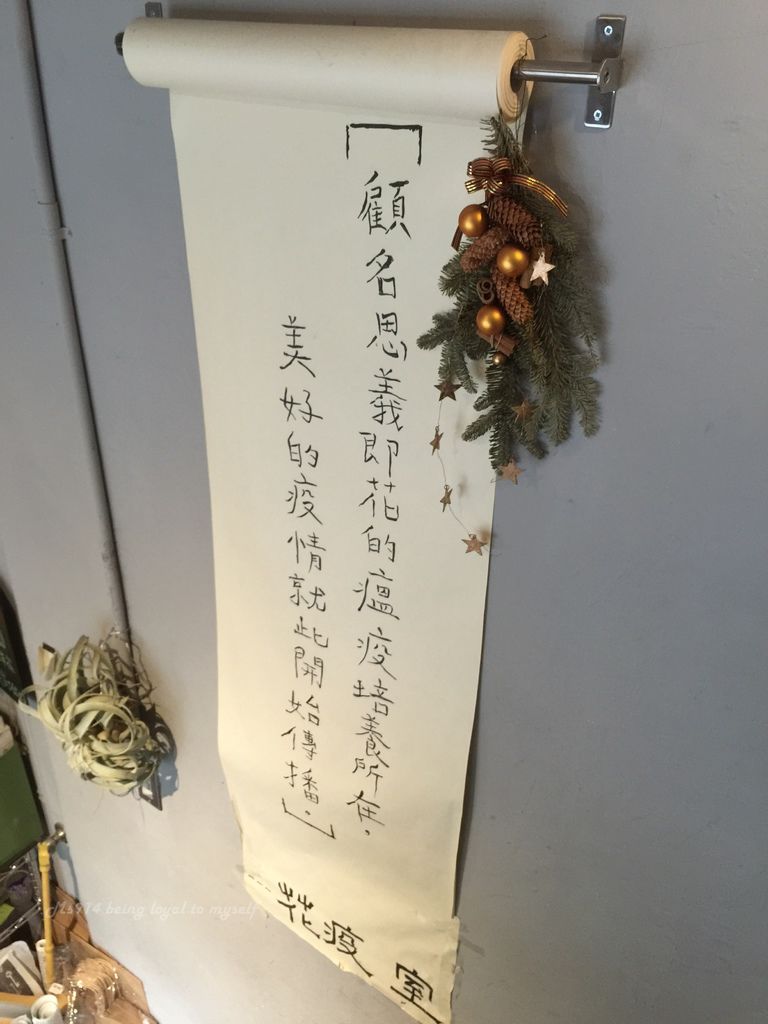 「顧名思義即花的瘟疫培養所在，
美好的疫情就此開始傳播。」
...花疫室
Ms914 being loyal to myself